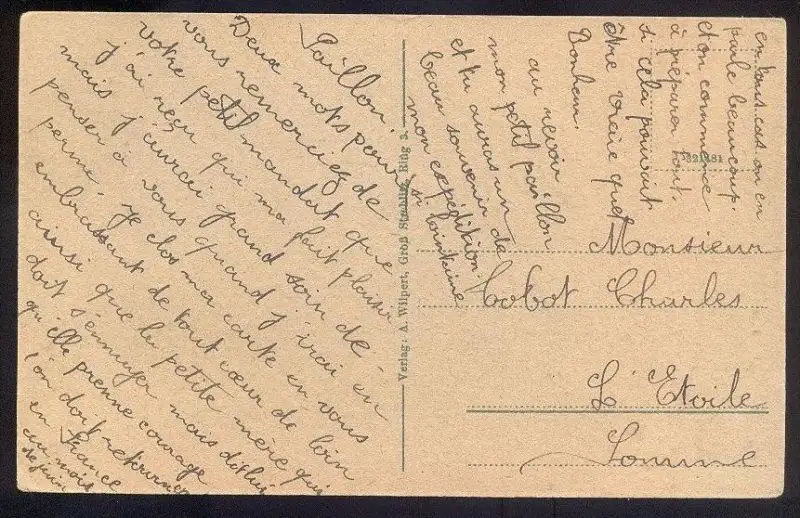 Paillon,
Deux mots pour
vous remerciez de
votre petit mandat que
j'ai reçu qui ma fait plaisir
mais j'aurai grand soin de
penser à vous quand j'irai en
perme. je clos ma carte en vous
embrassant de tout cœur de loin
ainsi que la petite mère qui
doit s'ennuyer mais dis lui
qu'elle prenne courage
l'on doit retourner
en France
au mois
de juin
en tous cas on en
parle beaucoup.
et on commence
à préparer tout.
si cela pouvait
être vraie quel
Bonheur.
au revoir
mon petit paillon
et tu auras un
beau souvenir de
mon expédition
si lointaine
321481
Verlag: A. Wilpert, Groß Strehlitz, Ring 3.
Monsieur
Cobot Charles
L'Etoile
Somme